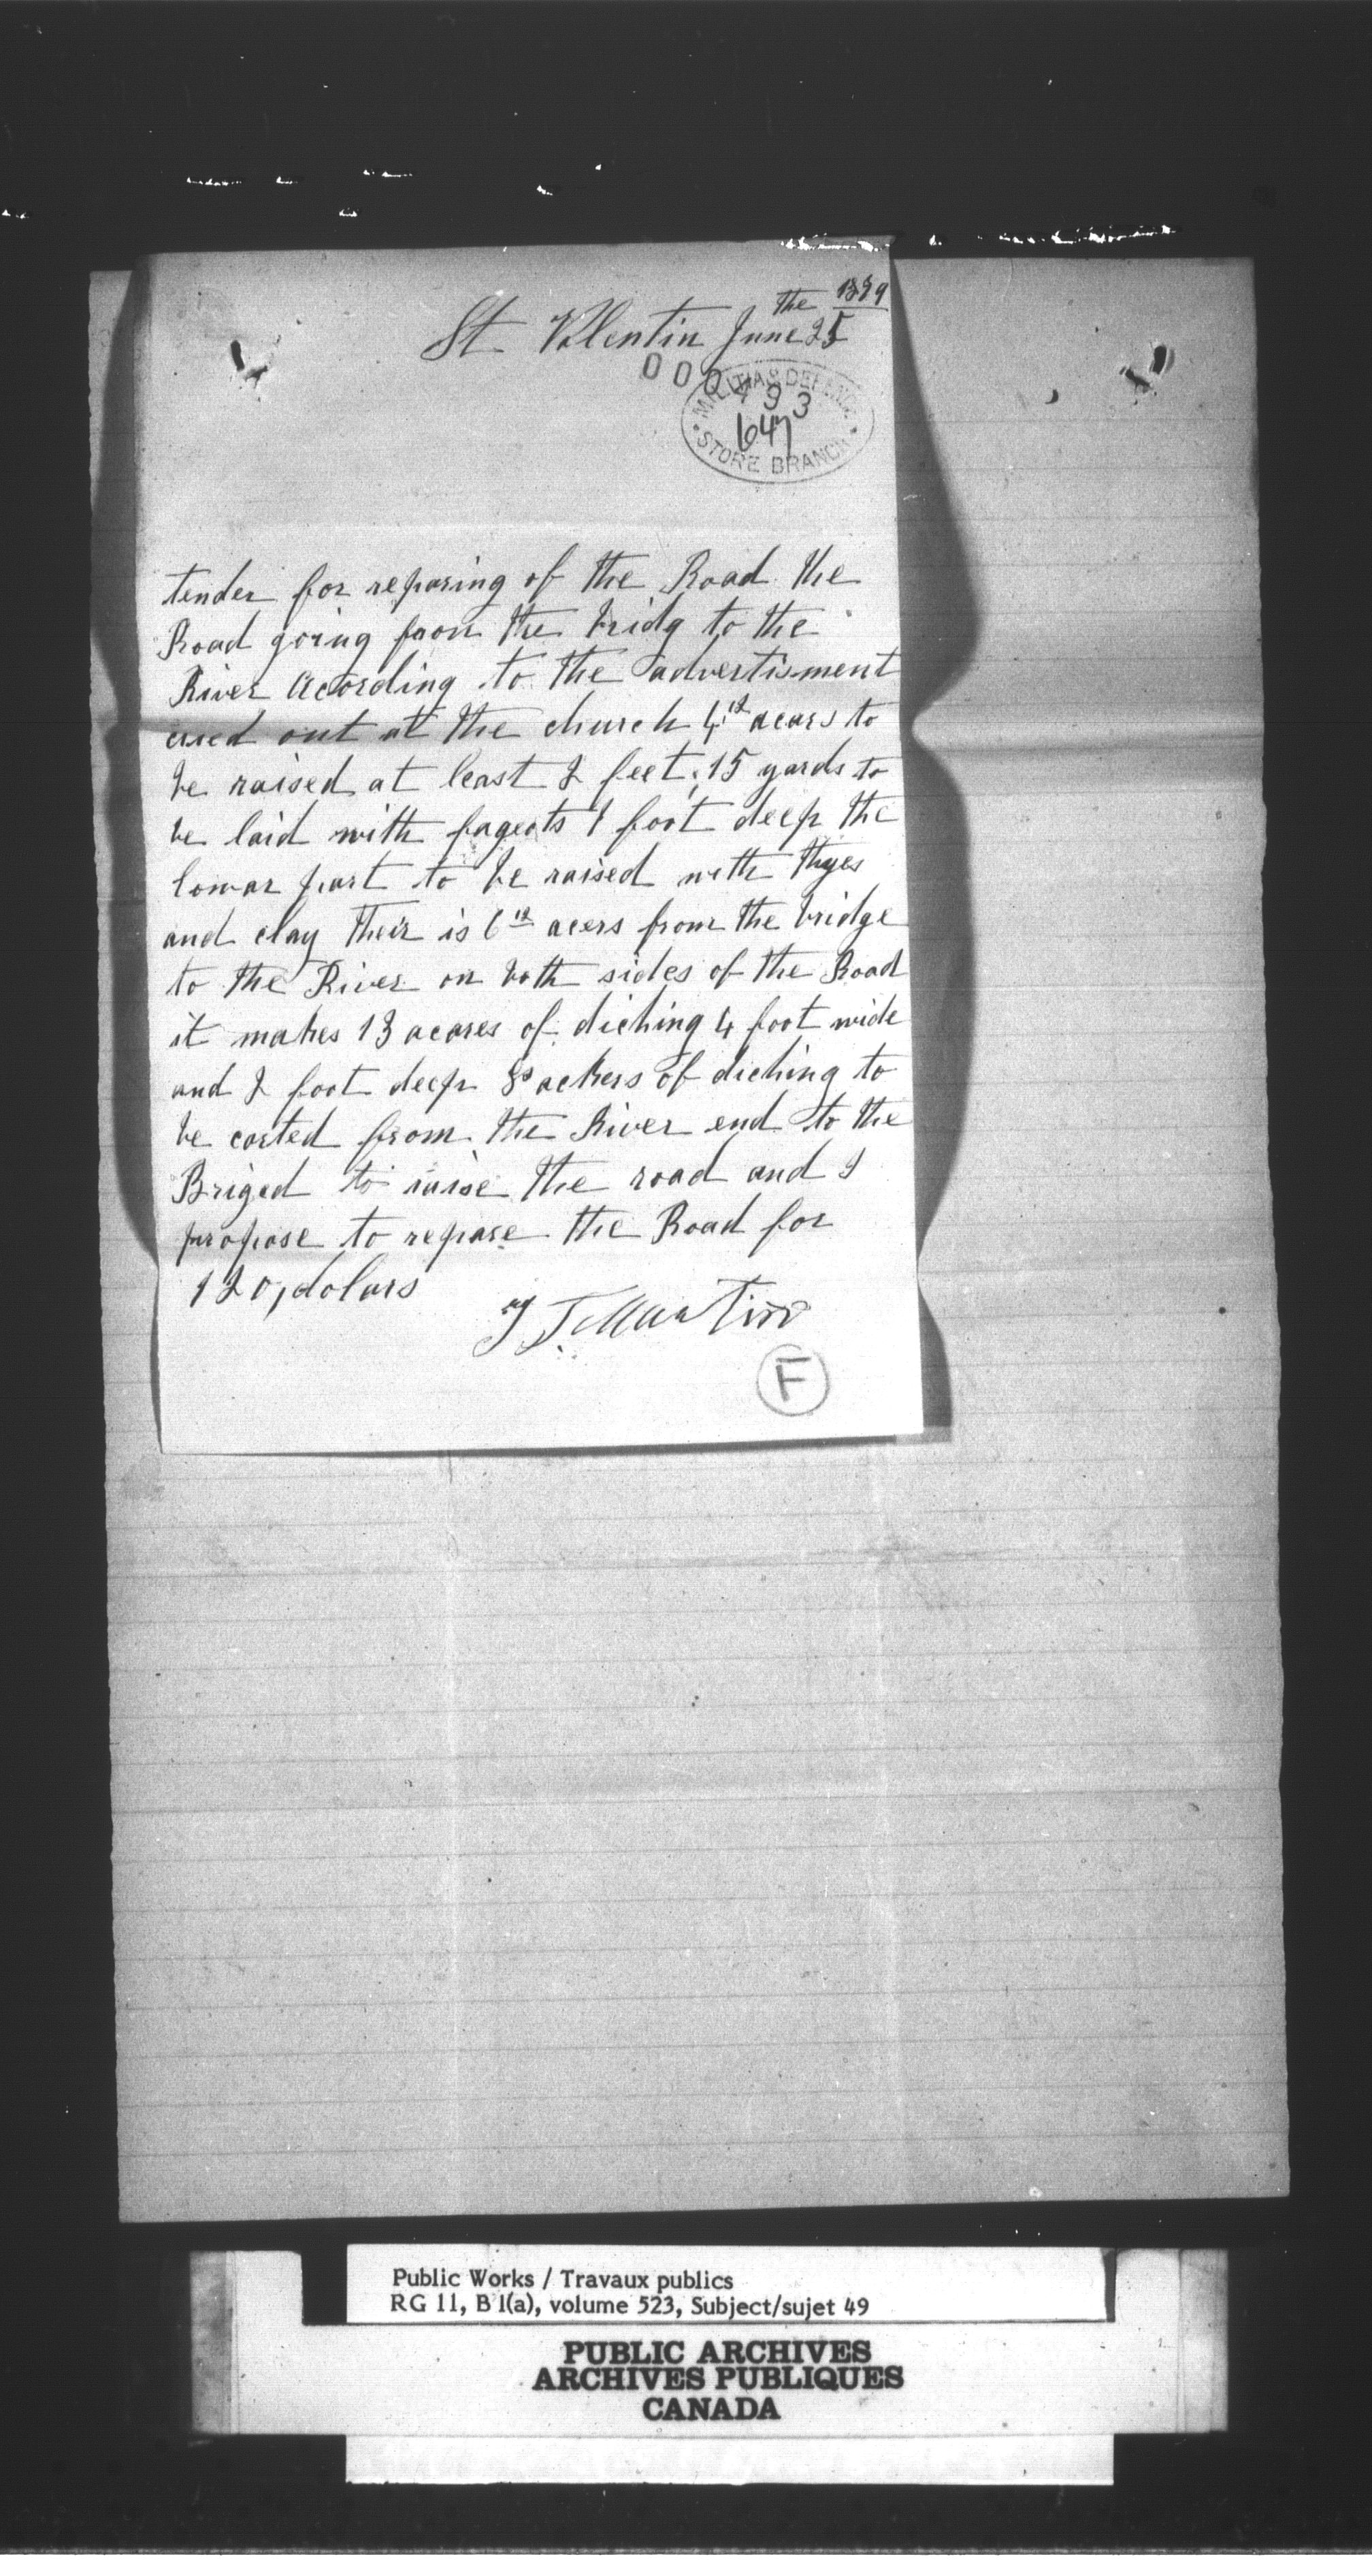 the 1879
St Valentin June 25
000793
MILITIA & DEFENCE
647
STORE BRANCH
tender for reparing of the Road the
Road going from the bridg to the
River Acording to the advertisment
cried out at the church 4 acars to
be raised at least 2 feet, 15 yards to
be laid with fageots 1 foot deep the
lowar part to be raised with
and clay their is 6 acers from the bridge
to the River on both sides of the Road
it makes 13 acares of diching 4 foot wide
and 2 foot deep 8 ackers of diching to
be carted from the River end to the
Briged to raise the road and I
propose to repare the Road for
120, dolars
Martin
F
Public Works / Travaux publics
RG 11, B 1(a), volume 523, Subject/sujet 49
PUBLIC ARCHIVES
ARCHIVES PUBLIQUES
CANADA